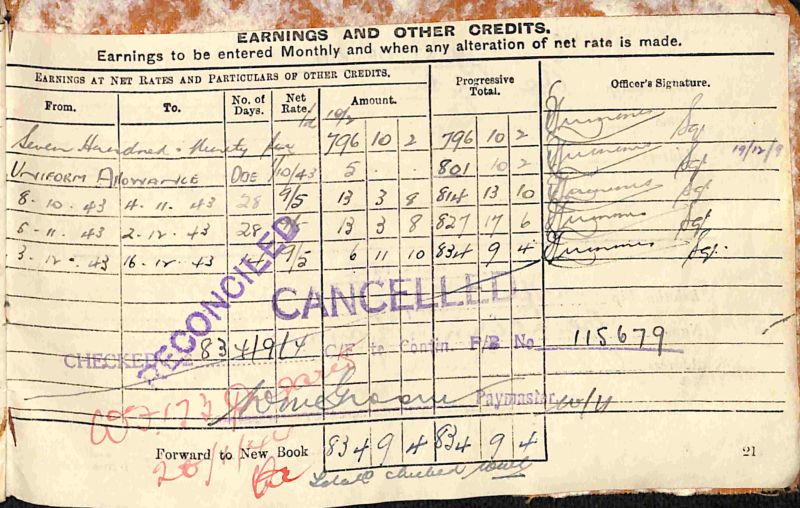 EARNINGS AND OTHER CREDITS.
Earnings to be entered Monthly and when any alteration of net rate is made.
EARNINGS AT NET RATES AND PARTICULARS OF OTHER CREDITS.
From. To. No. of Days. Net Rate. Amount. Progressive Total. Officer's Signature.
Seven Hundred & Ninety 10/2 796 10 2 796 10 2 Sgt
UNIFORM ALLOWANCE DUE 1/10/43 5 . . 801 10 2 Sgt 19/12/
8.10.43 4.11.43 28 9/5 13 3 8 814 13 10 Sgt
5.11.43 2.12.43 28 9/5 13 3 8 827 17 6 Sgt
3.12.43 16.12.43 14 9/5 6 11 10 834 9 4 Sgt.
RECONCILED
CANCELLED
CHECKED 834/9/4 C/F to Contin. P/B No 115679
Paymaster
Forward to New Book 834 9 4 834 9 4
checked
21